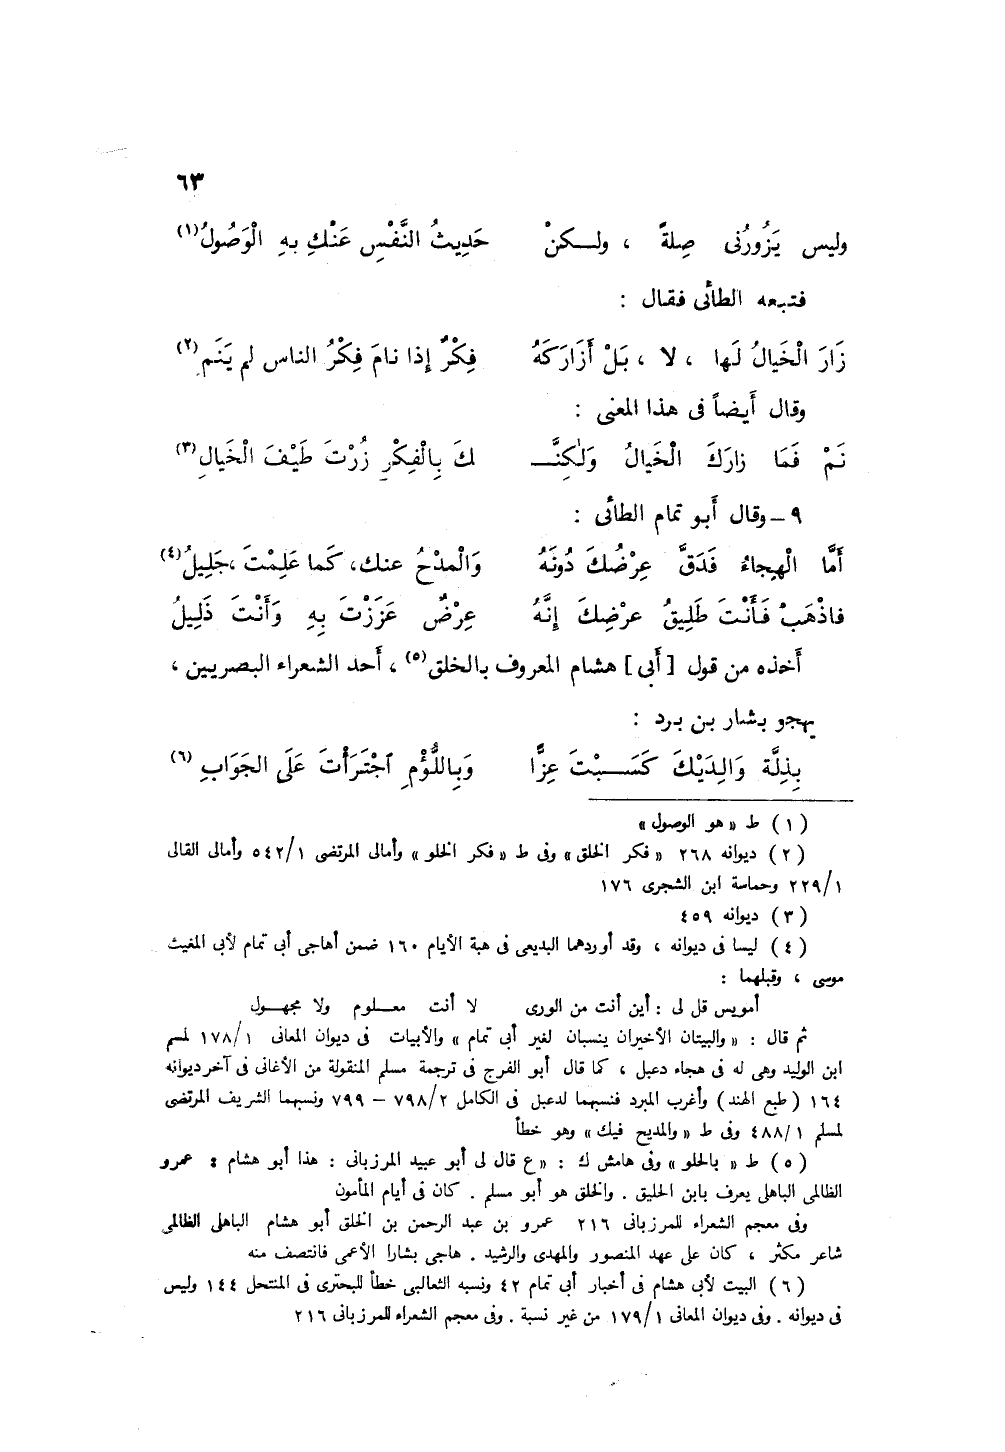 ٦٣
وليس يَزُورُنى صِلةً ، ولـكنْ حَدِيثُ النَّفْسِ عَنْكِ بِهِ الْوَصُولُ(١)
فتبعه الطائى فقال :
زَارَ الْخَيالُ لَها ، لا ، بَلْ أَزَارَكَهُ فِكْرٌ إِذا نامَ فِكْرُ الناس لم يَنَمِ(٢)
وقال أَيضاً فى هذا المعنى :
نَمْ فَمَا زارَكَ الْخَيالُ وَلٰكِنَّـ ـكَ بِالْفِكْرِ زُرْتَ طَيْفَ الْخَيالِ(٣)
٩ – وقال أَبو تمام الطائى :
أَمَّا الْهِجاءُ فَدَقَّ عِرْضُكَ دُونَهُ وَالْمدْحُ عنك، كَما عَلِمْتَ ،جَلِيلُ(٤)
فاذْهَبْ فَأَنْتَ طَلِيقُ عرْضِكَ إِنَّهُ عِرْضٌ عَزَزْتَ بِهِ وَأَنْتَ ذَلِيلُ
أَخذه من قول [ أَبى ] هشام المعروف بالخلق(٥) ، أَحد الشعراء البصريين ،
يهجو بشار بن برد :
بِذِلَّة وَالِدَيْكَ كَسَـبْتَ عِزًّا وَبِاللُّؤْمِ اجْتَرَأْتَ عَلَى الجَوَابِ (٦)
( ١ ) ط « هو الوصول »
( ٢ ) ديوانه ٢٦٨ « فكر الخلق » وفى ط « فكر الخلو » وأمالى المرتضى ١/ ٥٤٢ وأمالى القالى
١/ ٢٢٩ وحماسة ابن الشجرى ١٧٦
( ٣ ) ديوانه ٤٥٩
( ٤ ) ليسا فى ديوانه ، وقد أوردهما البديعى فى هبة الأيام ١٦٠ ضمن أهاجى أبى تمام لأبى المغيث
موسى ، وقبلهما :
أمويس قل لى : أين أنت من الورى لا أنت معـلوم ولا مجهـول
ثم قال : « والبيتان الأخيران ينسبان لغير أبى تمام » والأبيات فى ديوان المعانى ١/ ١٧٨ لمسلم
ابن الوليد وهى له فى هجاء دعبل ، كما قال أبو الفرج فى ترجمة مسلم المنقولة من الأغانى فى آخر ديوانه
١٦٤ ( طبع الهند ) وأغرب المبرد فنسبهما لدعبل فى الكامل ٢/ ٧٩٨ – ٧٩٩ ونسبهما الشريف المرتضى
لمسلم ١/ ٤٨٨ وفى ط « والمديح فيك » وهو خطأ
( ٥ ) ط « بالخلو » وفى هامش ك : « ع قال لى أبو عبيد المرزبانى : هذا أبو هشام : عمرو
الظالمى الباهلى يعرف بابن الخليق . والخلق هو أبو مسلم . كان فى أيام المأمون
وفى معجم الشعراء للمرزبانى ٢١٦ عمرو بن عبد الرحمن بن الخلق أبو هشام الباهلى الظالمى
شاعر مكثر ، كان على عهد المنصور والمهدى والرشيد . هاجى بشارا الأعمى فانتصف منه
( ٦ ) البيت لأبى هشام فى أخبار أبى تمام ٤٢ ونسبه الثعالبى خطأ للبحترى فى المنتحل ١٤٤ وليس
فى ديوانه . وفى ديوان المعانى ١/ ١٧٩ من غير نسبة . وفى معجم الشعراء للمرزبانى ٢١٦